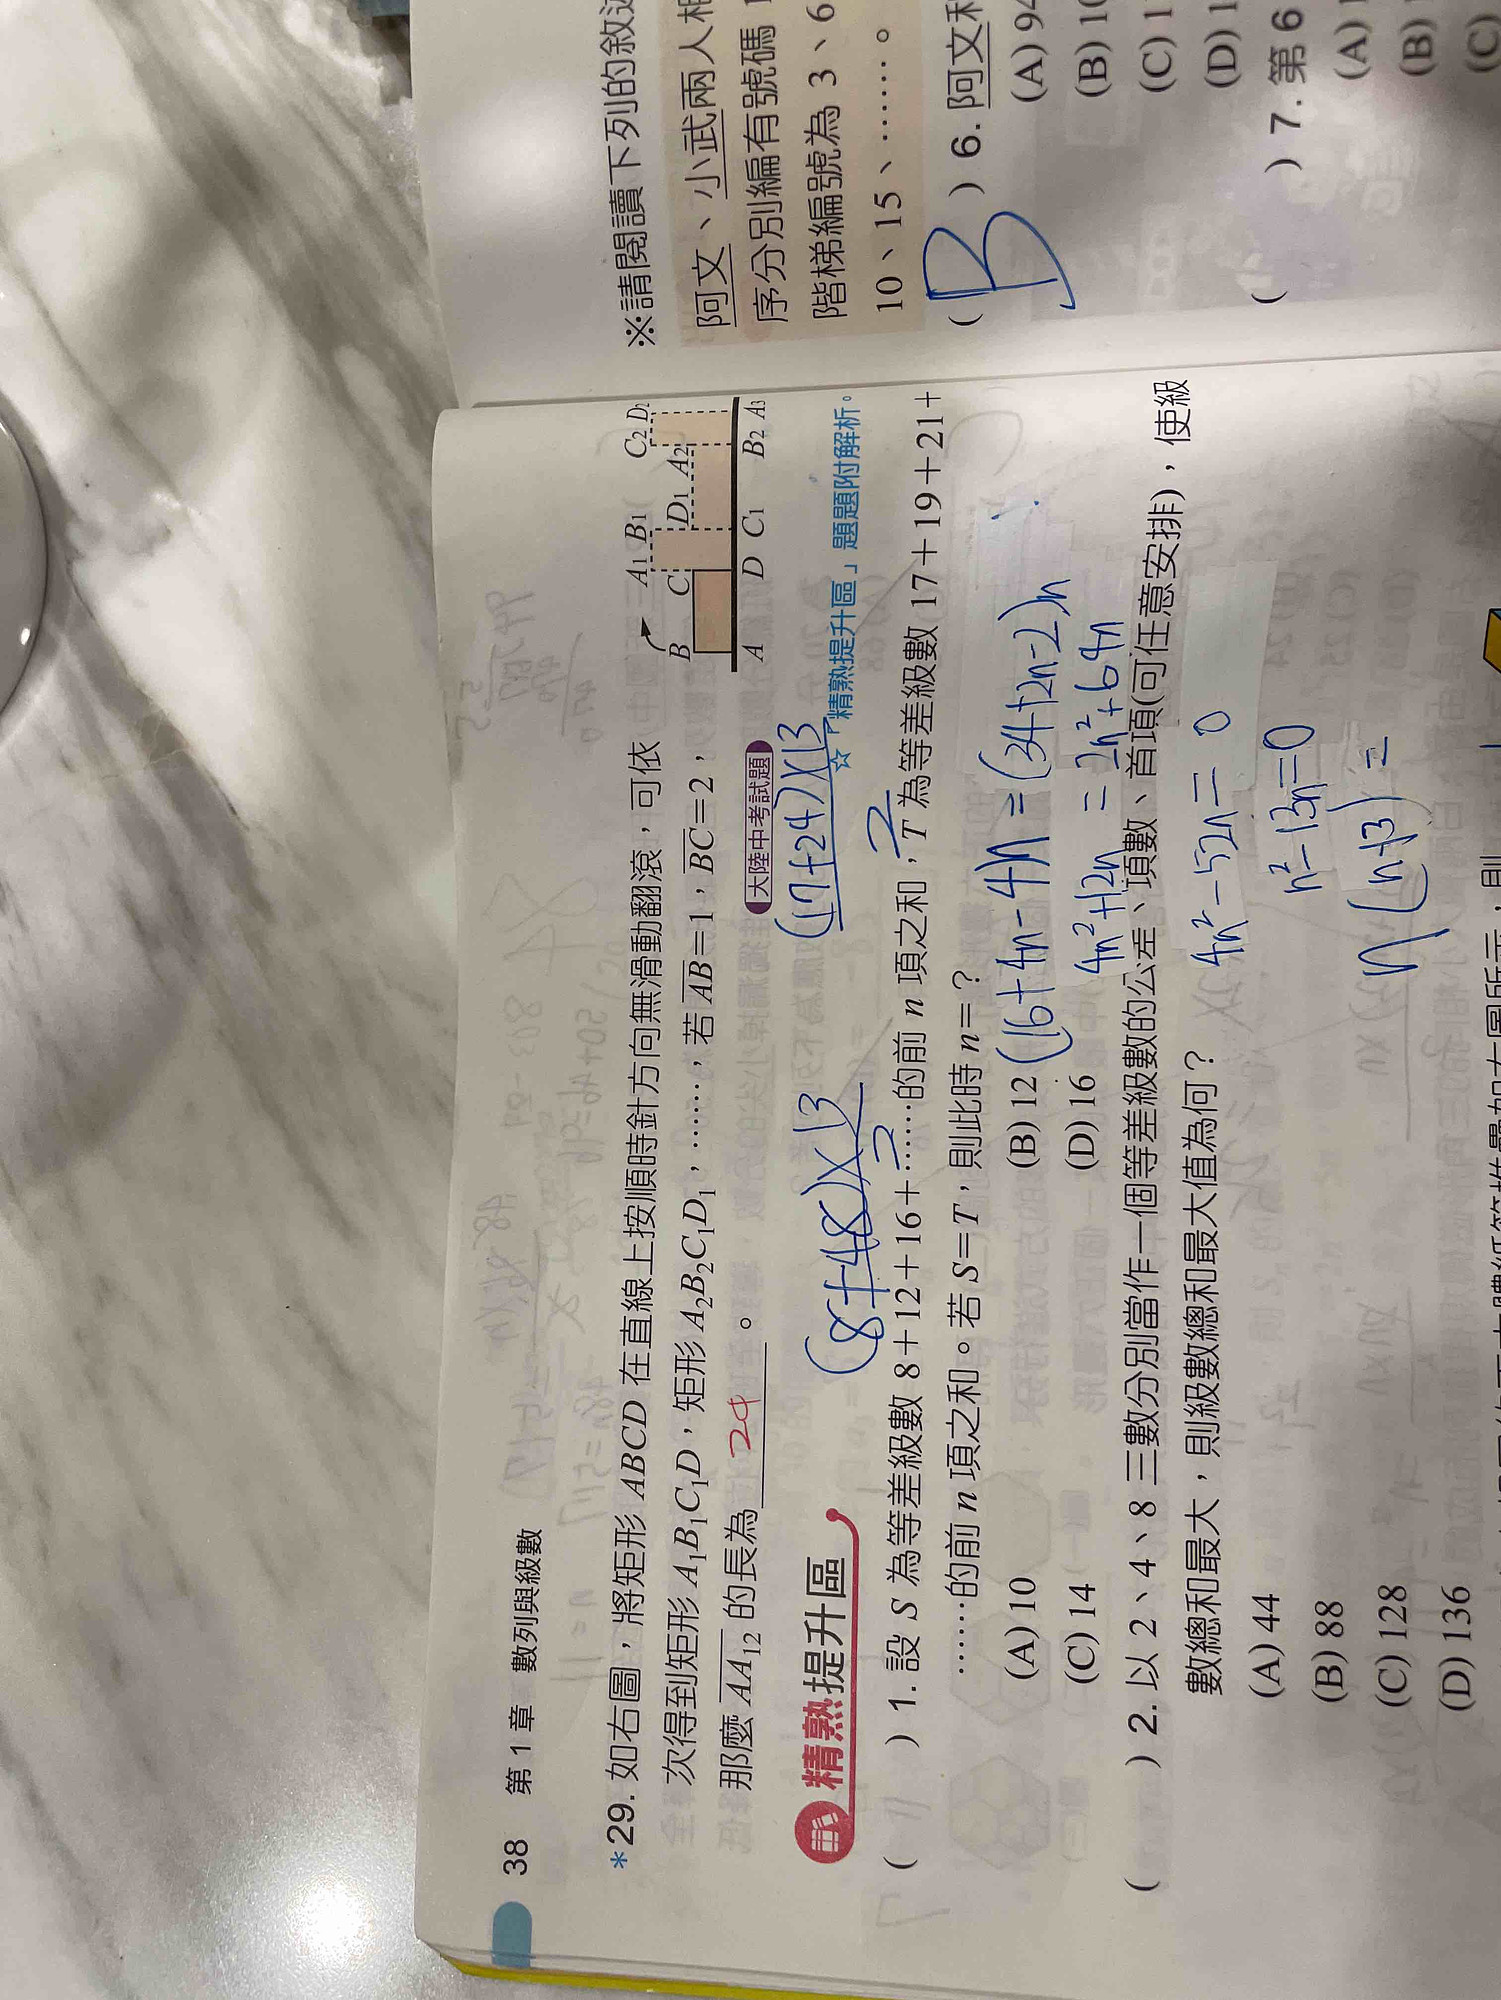 38 第 1 章 數列與級數
*29. 如右圖，將矩形 ABCD 在直線上按順時針方向無滑動翻滾，可依
次得到矩形 A₁B₁C₁D，矩形 A₂B₂C₁D₁，……，若 AB＝1，BC＝2，
那麼 AA₁₂ 的長為 24 。
大陸中考試題
A₁ B₁ C₂ D₂
B C D₁ A₂
A D C₁ B₂ A₃
精熟提升區
☆「精熟提升區」題題附解析。
(8+48)×13
2
(17+24)×13
2
( ) 1. 設 S 為等差級數 8＋12＋16＋……的前 n 項之和，T 為等差級數 17＋19＋21＋
……的前 n 項之和。若 S＝T，則此時 n＝？
(A) 10 (B) 12
(C) 14 (D) 16
(16+4n-4)n=(34+2n-2)n
4n²+12n=2n²+64n
4n²-52n=0
n²-13n=0
( ) 2. 以 2、4、8 三數分別當作一個等差級數的公差、項數、首項(可任意安排)，使級
數總和最大，則級數總和最大值為何？
(A) 44
(B) 88
(C) 128
(D) 136
※請閱讀下列的敘述
阿文、小武兩人相
序分別編有號碼 1
階梯編號為 3、6
10、15、……。
( B ) 6. 阿文和
(A) 94
(B) 10
(C) 1
(D) 1
( ) 7. 第 6
(A) 1
(B)
(C)